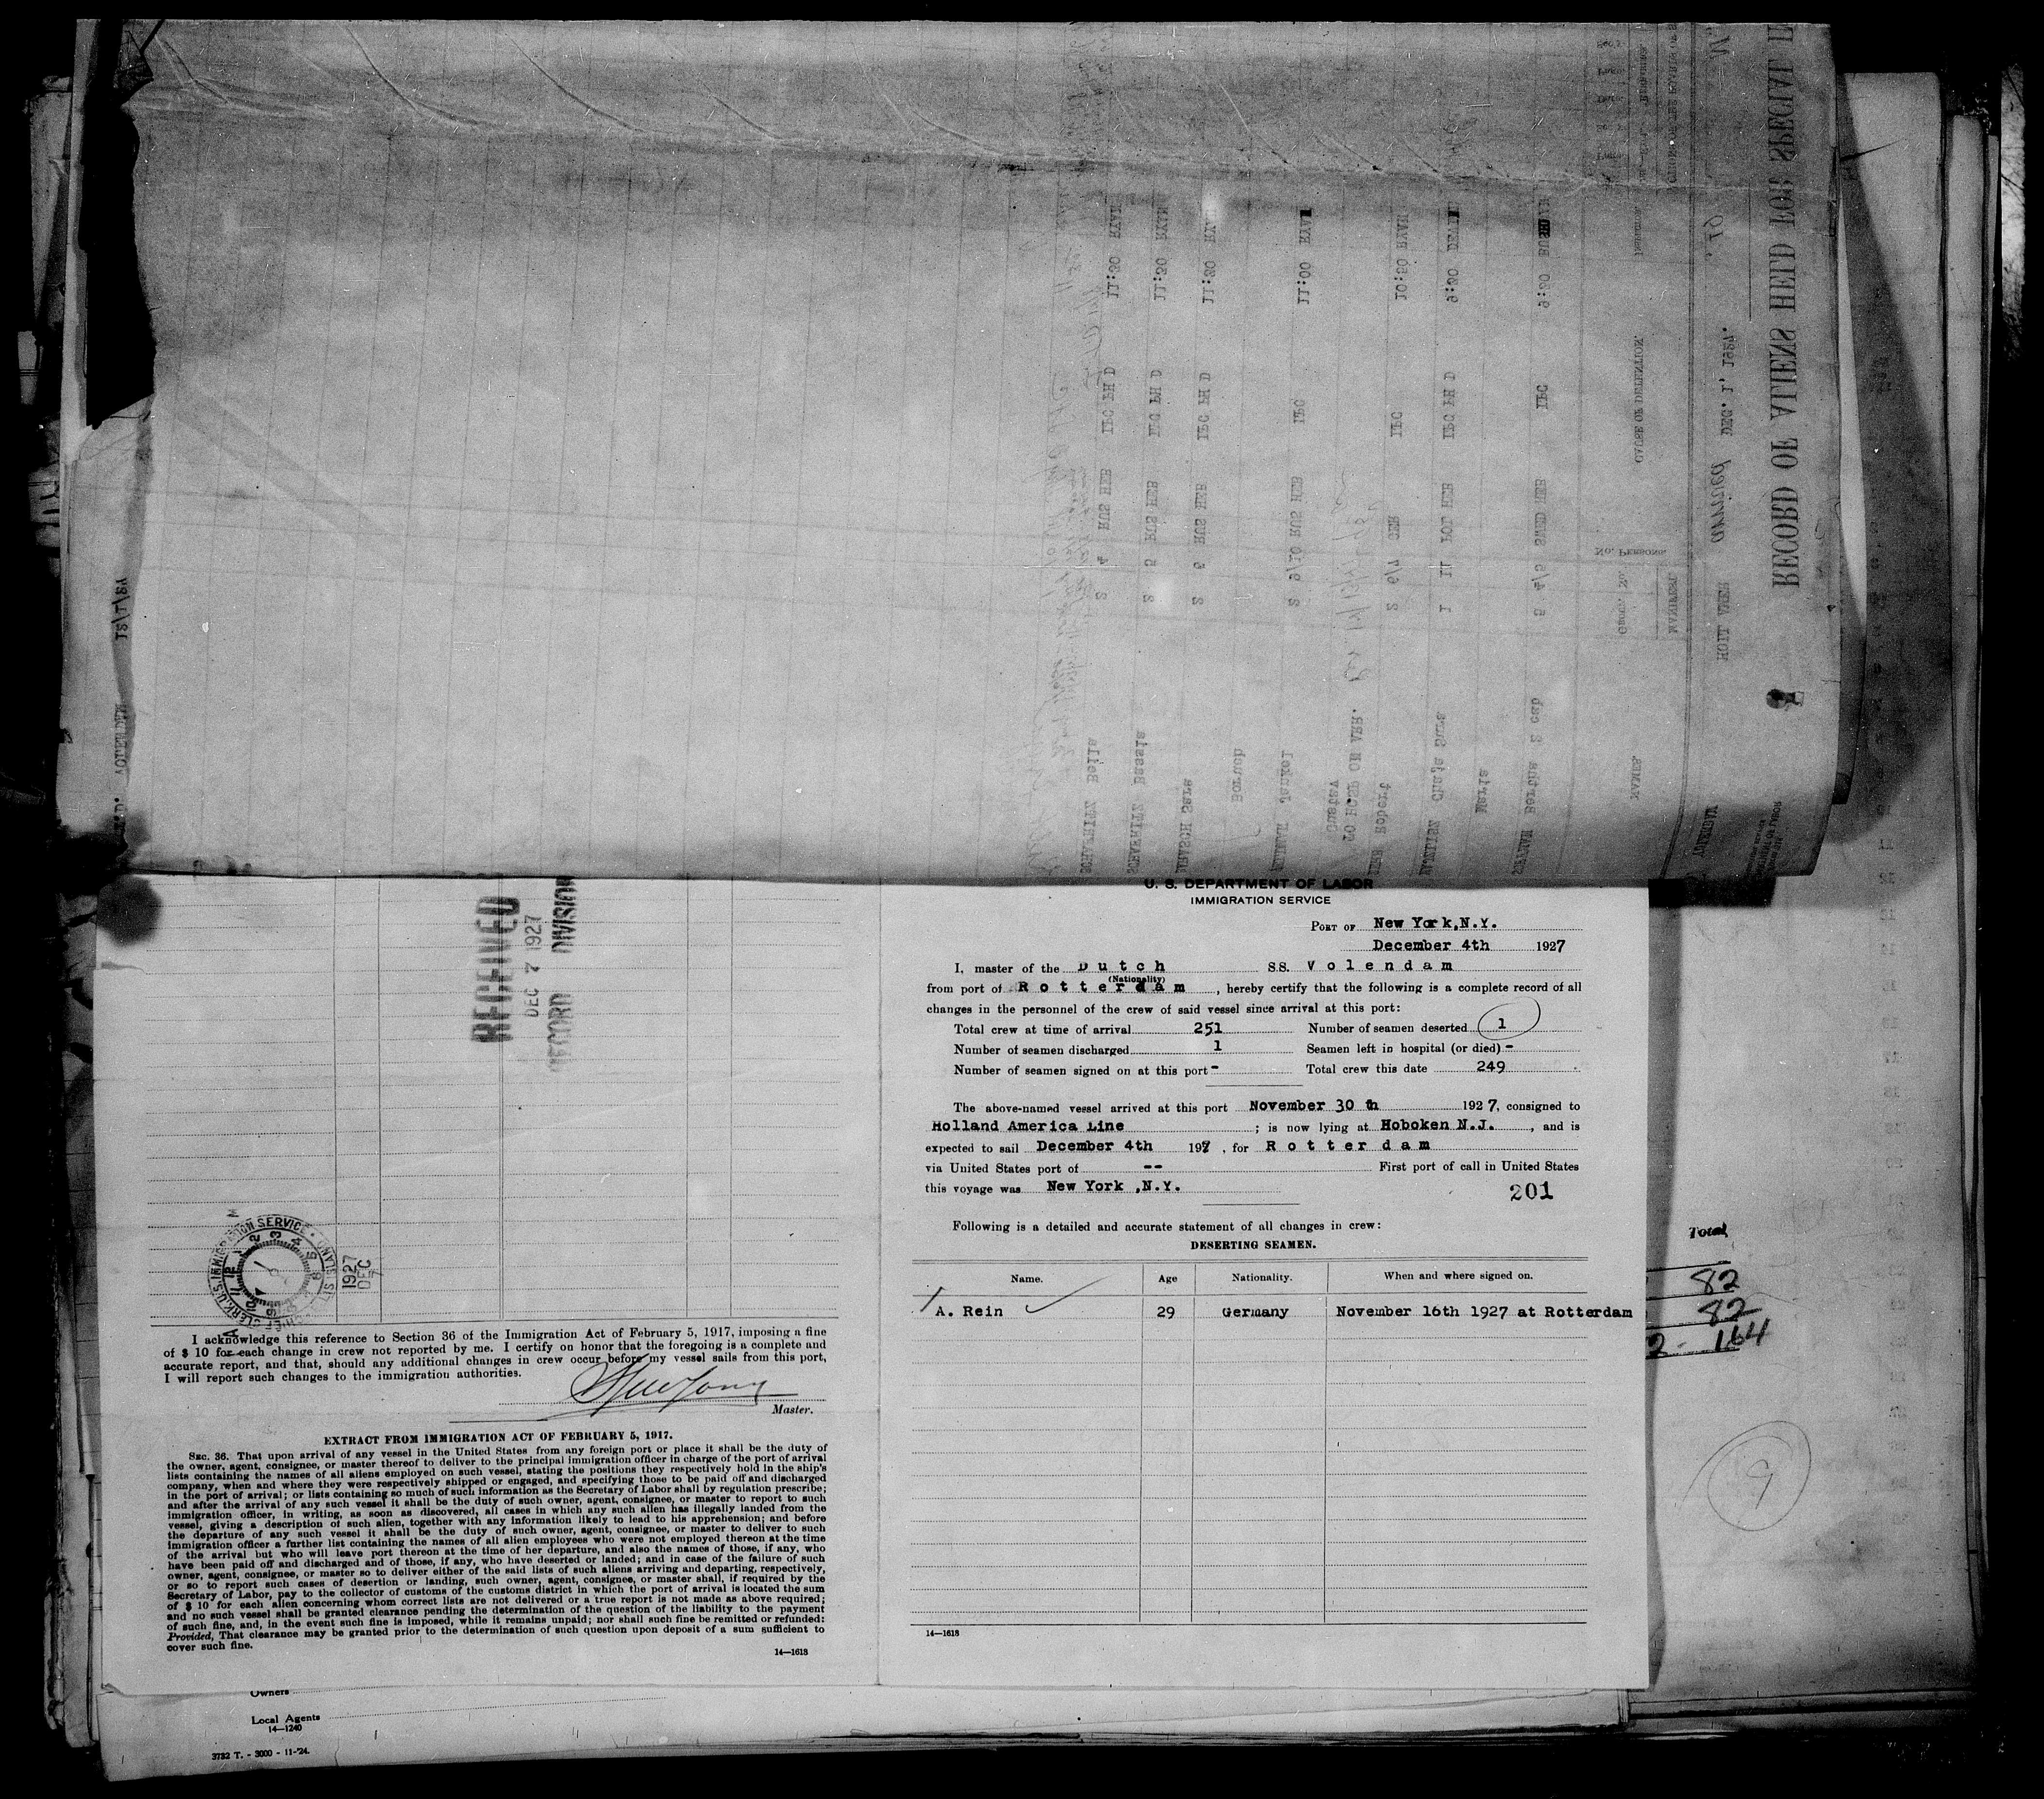 U. S. DEPARTMENT OF LABOR
IMMIGRATION SERVICE
PORT OF New York,N.Y.
December 4th 1927
I, master of the Dutch SS. Volendam
(Nationality)
from port of Rotterdam, hereby certify that the following is a complete record of all
changes in the personnel of the crew of said vessel since arrival at this port:
Total crew at time of arrival 251 Number of seamen deserted 1
Number of seamen discharged 1 Seamen left in hospital (or died) -
Number of seamen signed on at this port - Total crew this date 249
The above-named vessel arrived at this port November 30 th 1927, consigned to
Holland America Line ; is now lying at Hoboken N.J. , and is
expected to sail December 4th 1927 , for Rotterdam
via United States port of -- First port of call in United States
this voyage was New York ,N.Y.
201
Following is a detailed and accurate statement of all changes in crew:
DESERTING SEAMEN.
Name. Age Nationality. When and where signed on.
A. Rein 29 Germany November 16th 1927 at Rotterdam
14—1618
RECEIVED
DEC 7 1927
RECORD DIVISION
1927
DEC
7
I acknowledge this reference to Section 36 of the Immigration Act of February 5, 1917, imposing a fine
of $ 10 for each change in crew not reported by me. I certify on honor that the foregoing is a complete and
accurate report, and that, should any additional changes in crew occur before my vessel sails from this port,
I will report such changes to the immigration authorities.
Master.
EXTRACT FROM IMMIGRATION ACT OF FEBRUARY 5, 1917.
SEC. 36. That upon arrival of any vessel in the United States from any foreign port or place it shall be the duty of
the owner, agent, consignee, or master thereof to deliver to the principal immigration officer in charge of the port of arrival
lists containing the names of all aliens employed on such vessel, stating the positions they respectively hold in the ship's
company, when and where they were respectively shipped or engaged, and specifying those to be paid off and discharged
in the port of arrival; or lists containing so much of such information as the Secretary of Labor shall by regulation prescribe;
and after the arrival of any such vessel it shall be the duty of such owner, agent, consignee, or master to report to such
immigration officer, in writing, as soon as discovered, all cases in which any such alien has illegally landed from the
vessel, giving a description of such alien, together with any information likely to lead to his apprehension; and before
the departure of any such vessel it shall be the duty of such owner, agent, consignee, or master to deliver to such
immigration officer a further list containing the names of all alien employees who were not employed thereon at the time
of the arrival but who will leave port thereon at the time of her departure, and also the names of those, if any, who
have been paid off and discharged and of those, if any, who have deserted or landed; and in case of the failure of such
owner, agent, consignee, or master so to deliver either of the said lists of such aliens arriving and departing, respectively,
or so to report such cases of desertion or landing, such owner, agent, consignee, or master shall, if required by the
Secretary of Labor, pay to the collector of customs of the customs district in which the port of arrival is located the sum
of $ 10 for each alien concerning whom correct lists are not delivered or a true report is not made as above required;
and no such vessel shall be granted clearance pending the determination of the question of the liability to the payment
of such fine, and, in the event such fine is imposed, while it remains unpaid; nor shall such fine be remitted or refunded:
Provided, That clearance may be granted prior to the determination of such question upon deposit of a sum sufficient to
cover such fine.
14—1618
Owners
Local Agents
14—1240
3732 T. - 3000 - 11-'24.
Total
82
82
2 - 164
9
RECORD OF ALIENS HELD FOR SPECIAL
HOLL AMER arrived DEC. 1, 1927.
NAMES.
MANIFEST.
No. PERSONS.
CAUSE OF DETENTION.
Bertha 2 cab 5 4/5 SWED HEB LPC 9:30
Maria
Chaja Sura 1 11 POL HEB LPC PH D 9:30
Robert 2 6/7 GER LPC 10:30 RYAN
TO HOSP ON ARR.
Gustav
Jankel 2 9/10 RUS HEB LPC 11:00 RYAN
Boruch
Sara 2 6 RUS HEB LPC PH D 11:30
Bassia 2 5 RUS HEB LPC PH D 11:30 RYAN
Beila 2 4 RUS HEB LPC PH D 11:30 RYAN